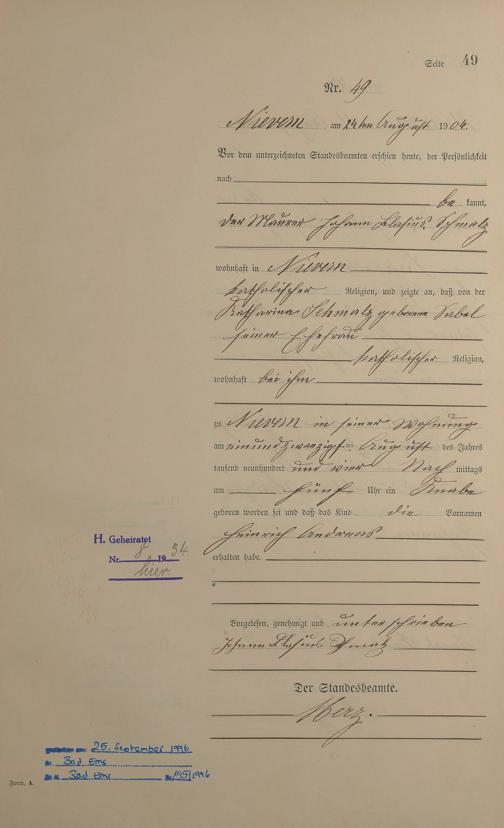 Seite 49
Nr. 49
Nievern am 24ten August 1904.
Vor dem unterzeichneten Standesbeamten erschien heute, der Persönlichkeit
nach
be kannt,
der Maurer Johann Blasius Schmalz
wohnhaft in Nievern
katholischer Religion, und zeigte an, daß von der
Katharina Schmalz geborene Sabel
seiner Ehefrau
katholischer Religion,
wohnhaft bei ihm
zu Nievern in seiner Wohnung
am einundzwanzigsten August des Jahres
tausend neunhundert und vier Nach mittags
um fünf Uhr ein Knabe
geboren worden sei und daß das Kind die Vornamen
Heinrich Andreas
erhalten habe.
H. Geheiratet
Nr. 8 1934
hier
Vorgelesen, genehmigt und unterschrieben
Johann Blasius Schmalz
Der Standesbeamte.
Merz.
25. September 1996
Bad Ems
Bad Ems 195/1996
Form. A.